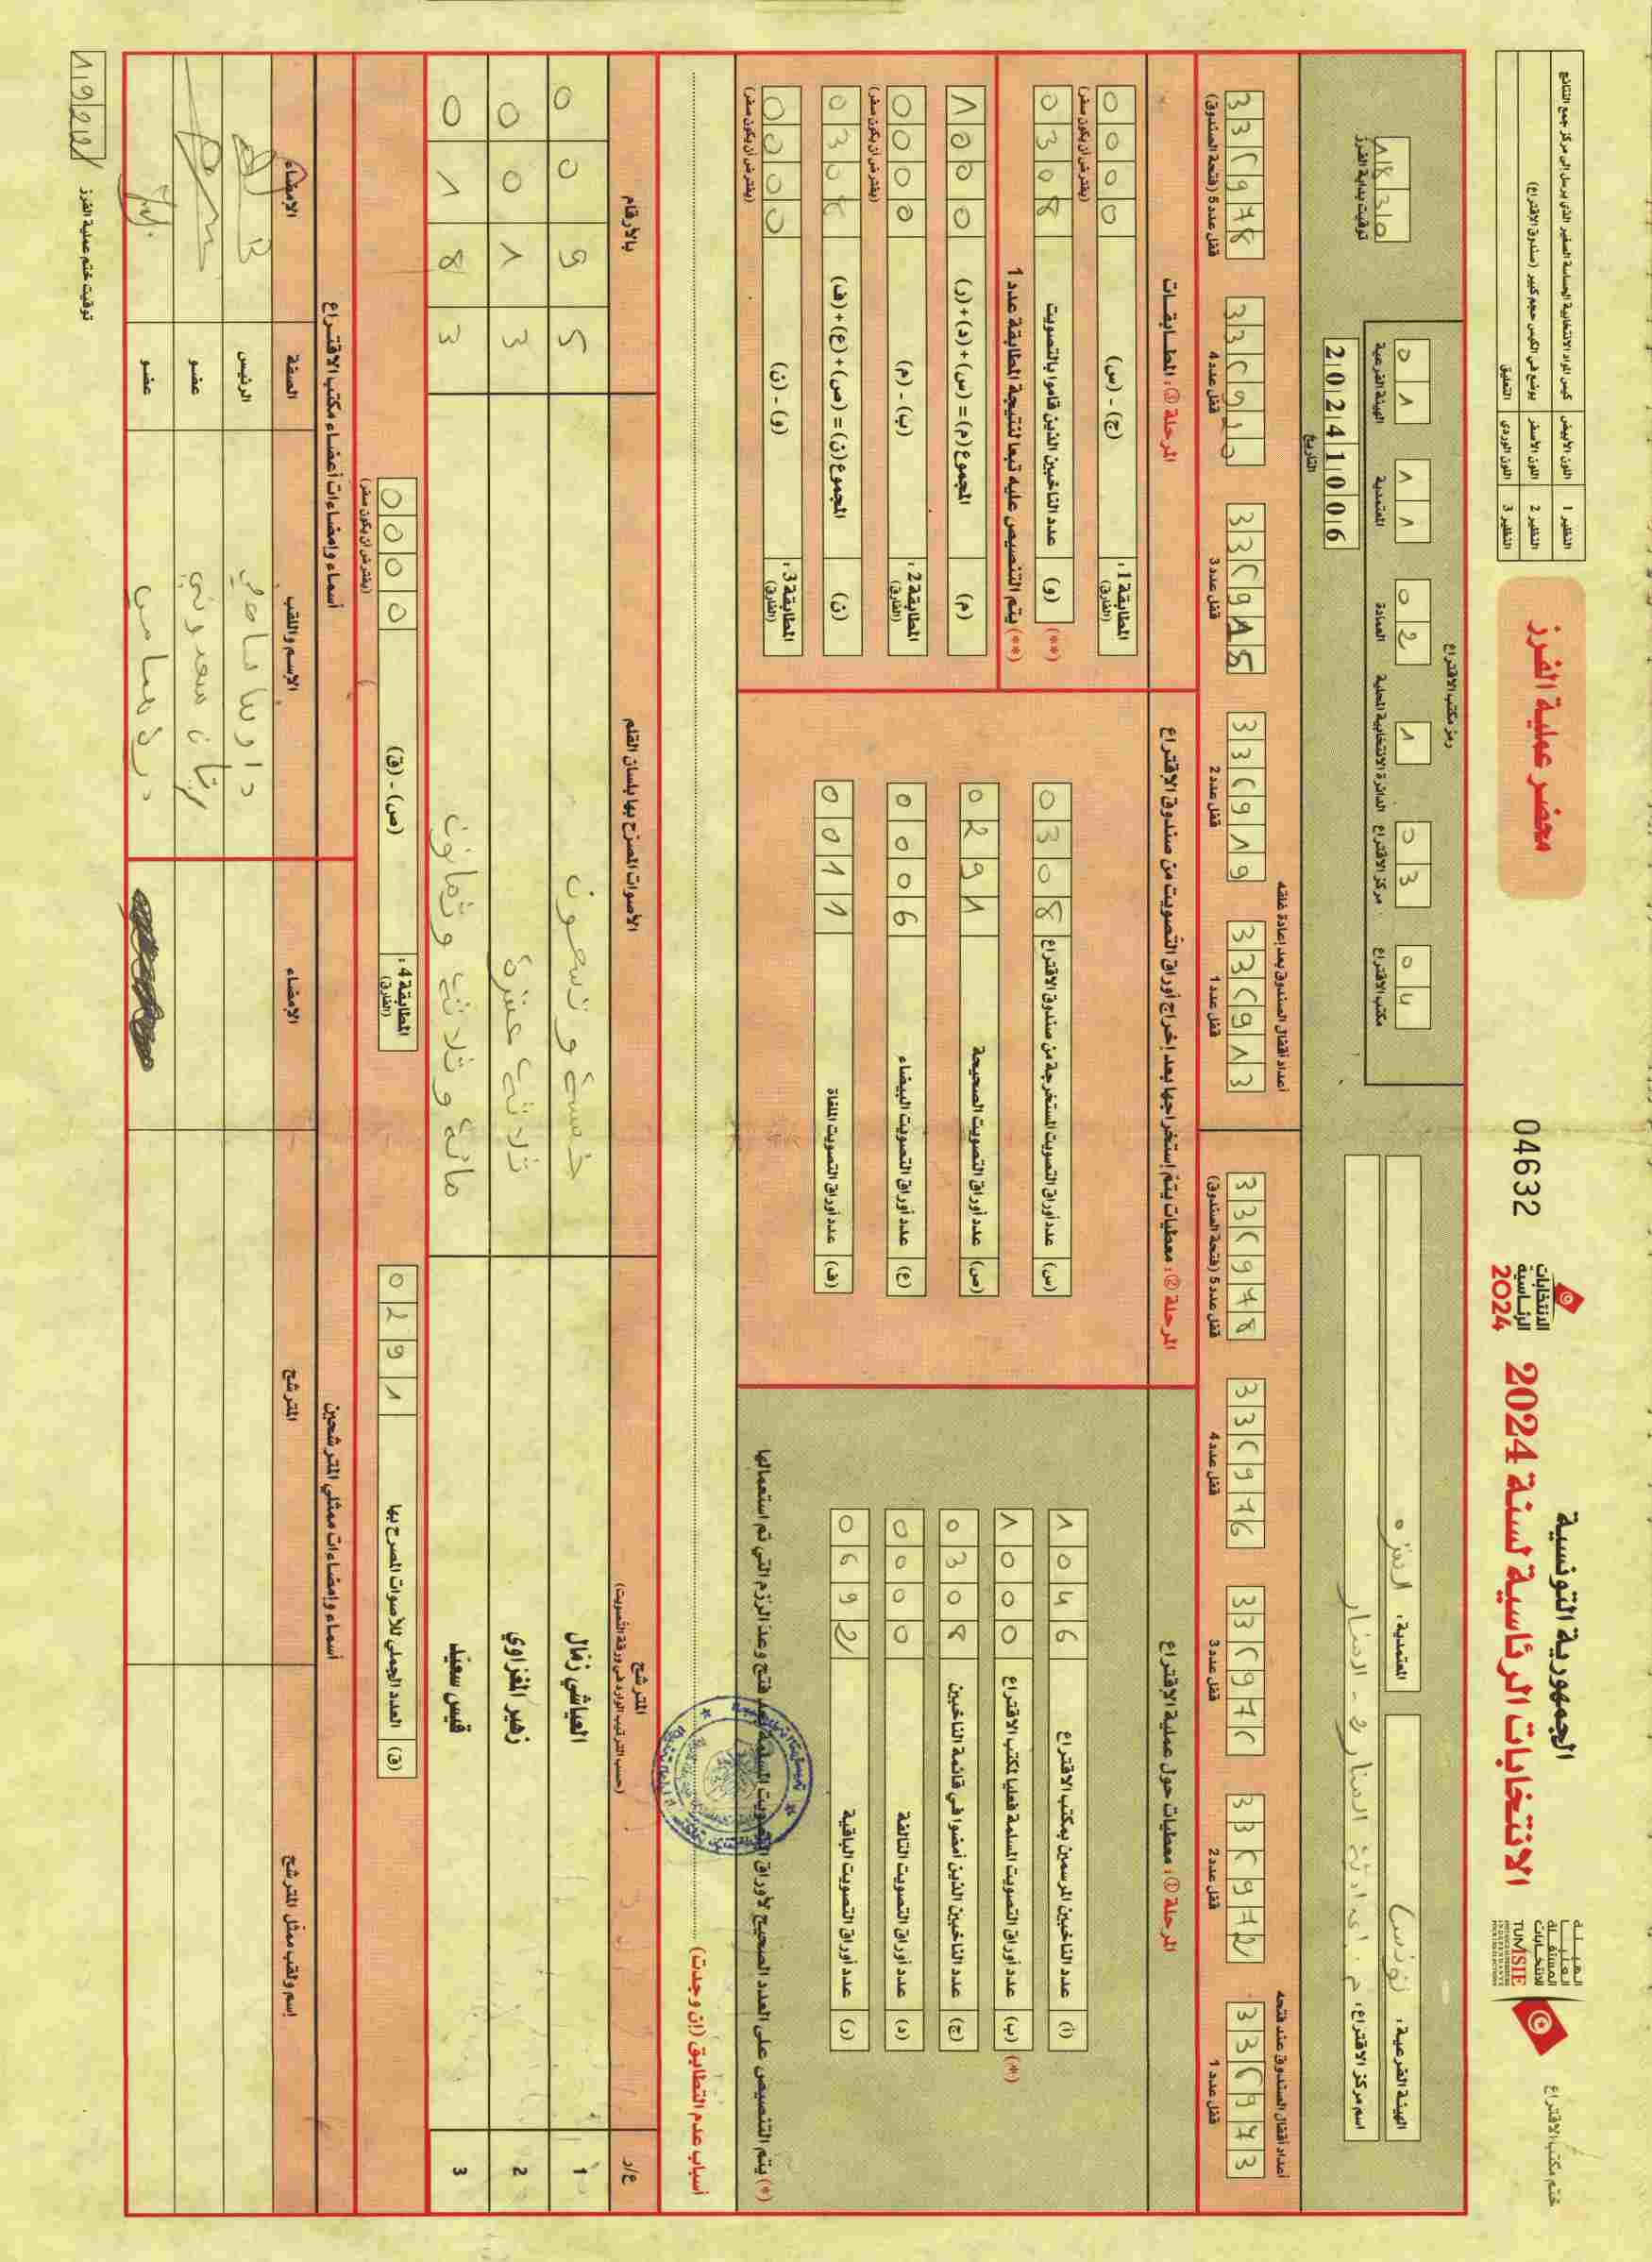 الجمهورية التونسية
الانتخابات الرئاسية لسنة 2024
الهيئة العليا المستقلة للانتخابات
TUNISIE
ختم مكتب الاقتراع
الانتخابات الرئاسية 2024
04632
محضر عملية الفرز
النظير 1 اللون الأبيض كيس المواد الانتخابية الحساسة الصغير الذي يرسل إلى مركز جمع النتائج
النظير 2 اللون الأصفر يوضع في الكيس حجم كبير (صندوق الاقتراع)
النظير 3 اللون الوردي التعليق
الهيئة الفرعية: تونس 1
المعتمدية: المنزه
اسم مركز الاقتراع: م. إعدادية المنار 2 - المنار
رمز مكتب الاقتراع
01 الهيئة الفرعية
11 المعتمدية
02 العمادة
1 الدائرة الانتخابية المحلية
03 مركز الاقتراع
04 مكتب الاقتراع
20241006
التاريخ
1830
توقيت بداية الفرز
أعداد أقفال الصندوق عند فتحه
قفل عدد 1
قفل عدد 2
قفل عدد 3
قفل عدد 4
قفل عدد 5 (فتحة الصندوق)
أعداد أقفال الصندوق بعد إعادة غلقه
قفل عدد 1
قفل عدد 2
قفل عدد 3
قفل عدد 4
قفل عدد 5 (فتحة الصندوق)
المرحلة ①: معطيات حول عملية الاقتراع
(أ) عدد الناخبين المرسمين بمكتب الاقتراع 1046
(ب) عدد أوراق التصويت المسلمة فعليا لمكتب الاقتراع 1000 (*)
(ج) عدد الناخبين الذين أمضوا في قائمة الناخبين 0308
(د) عدد أوراق التصويت التالفة 0000
(ر) عدد أوراق التصويت الباقية 0692
(*) يتم التنصيص على العدد الصحيح لأوراق التصويت المسلمة بعد فتح وعد الرزم التي تم استعمالها
المرحلة ②: معطيات يتم إستخراجها بعد إخراج أوراق التصويت من صندوق الاقتراع
(س) عدد أوراق التصويت المستخرجة من صندوق الاقتراع 0308
(ص) عدد أوراق التصويت الصحيحة 0291
(ع) عدد أوراق التصويت البيضاء 0006
(ف) عدد أوراق التصويت الملغاة 0011
المرحلة ③: المطابقات
المطابقة 1: (الفارق) (ج) - (س) 0000
(يفترض أن يكون صفر)
(**) (و) عدد الناخبين الذين قاموا بالتصويت 0308
(**) يتم التنصيص عليه تبعا لنتيجة المطابقة عدد 1
(م) المجموع (م) = (س) + (د) + (ر) 1000
المطابقة 2: (الفارق) (ب) - (م) 0000
(يفترض أن يكون صفر)
(ن) المجموع (ن) = (ص) + (ع) + (ف) 0308
المطابقة 3: (الفارق) (و) - (ن) 0000
(يفترض أن يكون صفر)
أسباب عدم التطابق (إن وجدت)
ع/ر المترشح (حسب الترتيب الوارد في ورقة التصويت) الأصوات المصرح بها بلسان القلم بالأرقام
1 العياشي زمّال خمسة وتسعون 0095
2 زهير المغزاوي ثلاثة عشرة 0013
3 قيس سعيّد مائة وثلاثة وثمانون 0183
(ق) العدد الجملي للأصوات المصرح بها 0291
المطابقة 4: (الفارق) (ص) - (ق) 0000
(يفترض أن يكون صفر)
أسماء وإمضاءات ممثلي المترشحين
إسم ولقب ممثل المترشح المترشح الإمضاء
أسماء وإمضاءات أعضاء مكتب الاقتراع
الإسم واللقب الصفة الإمضاء
الرئيس
عضو
عضو
توقيت ختم عملية الفرز